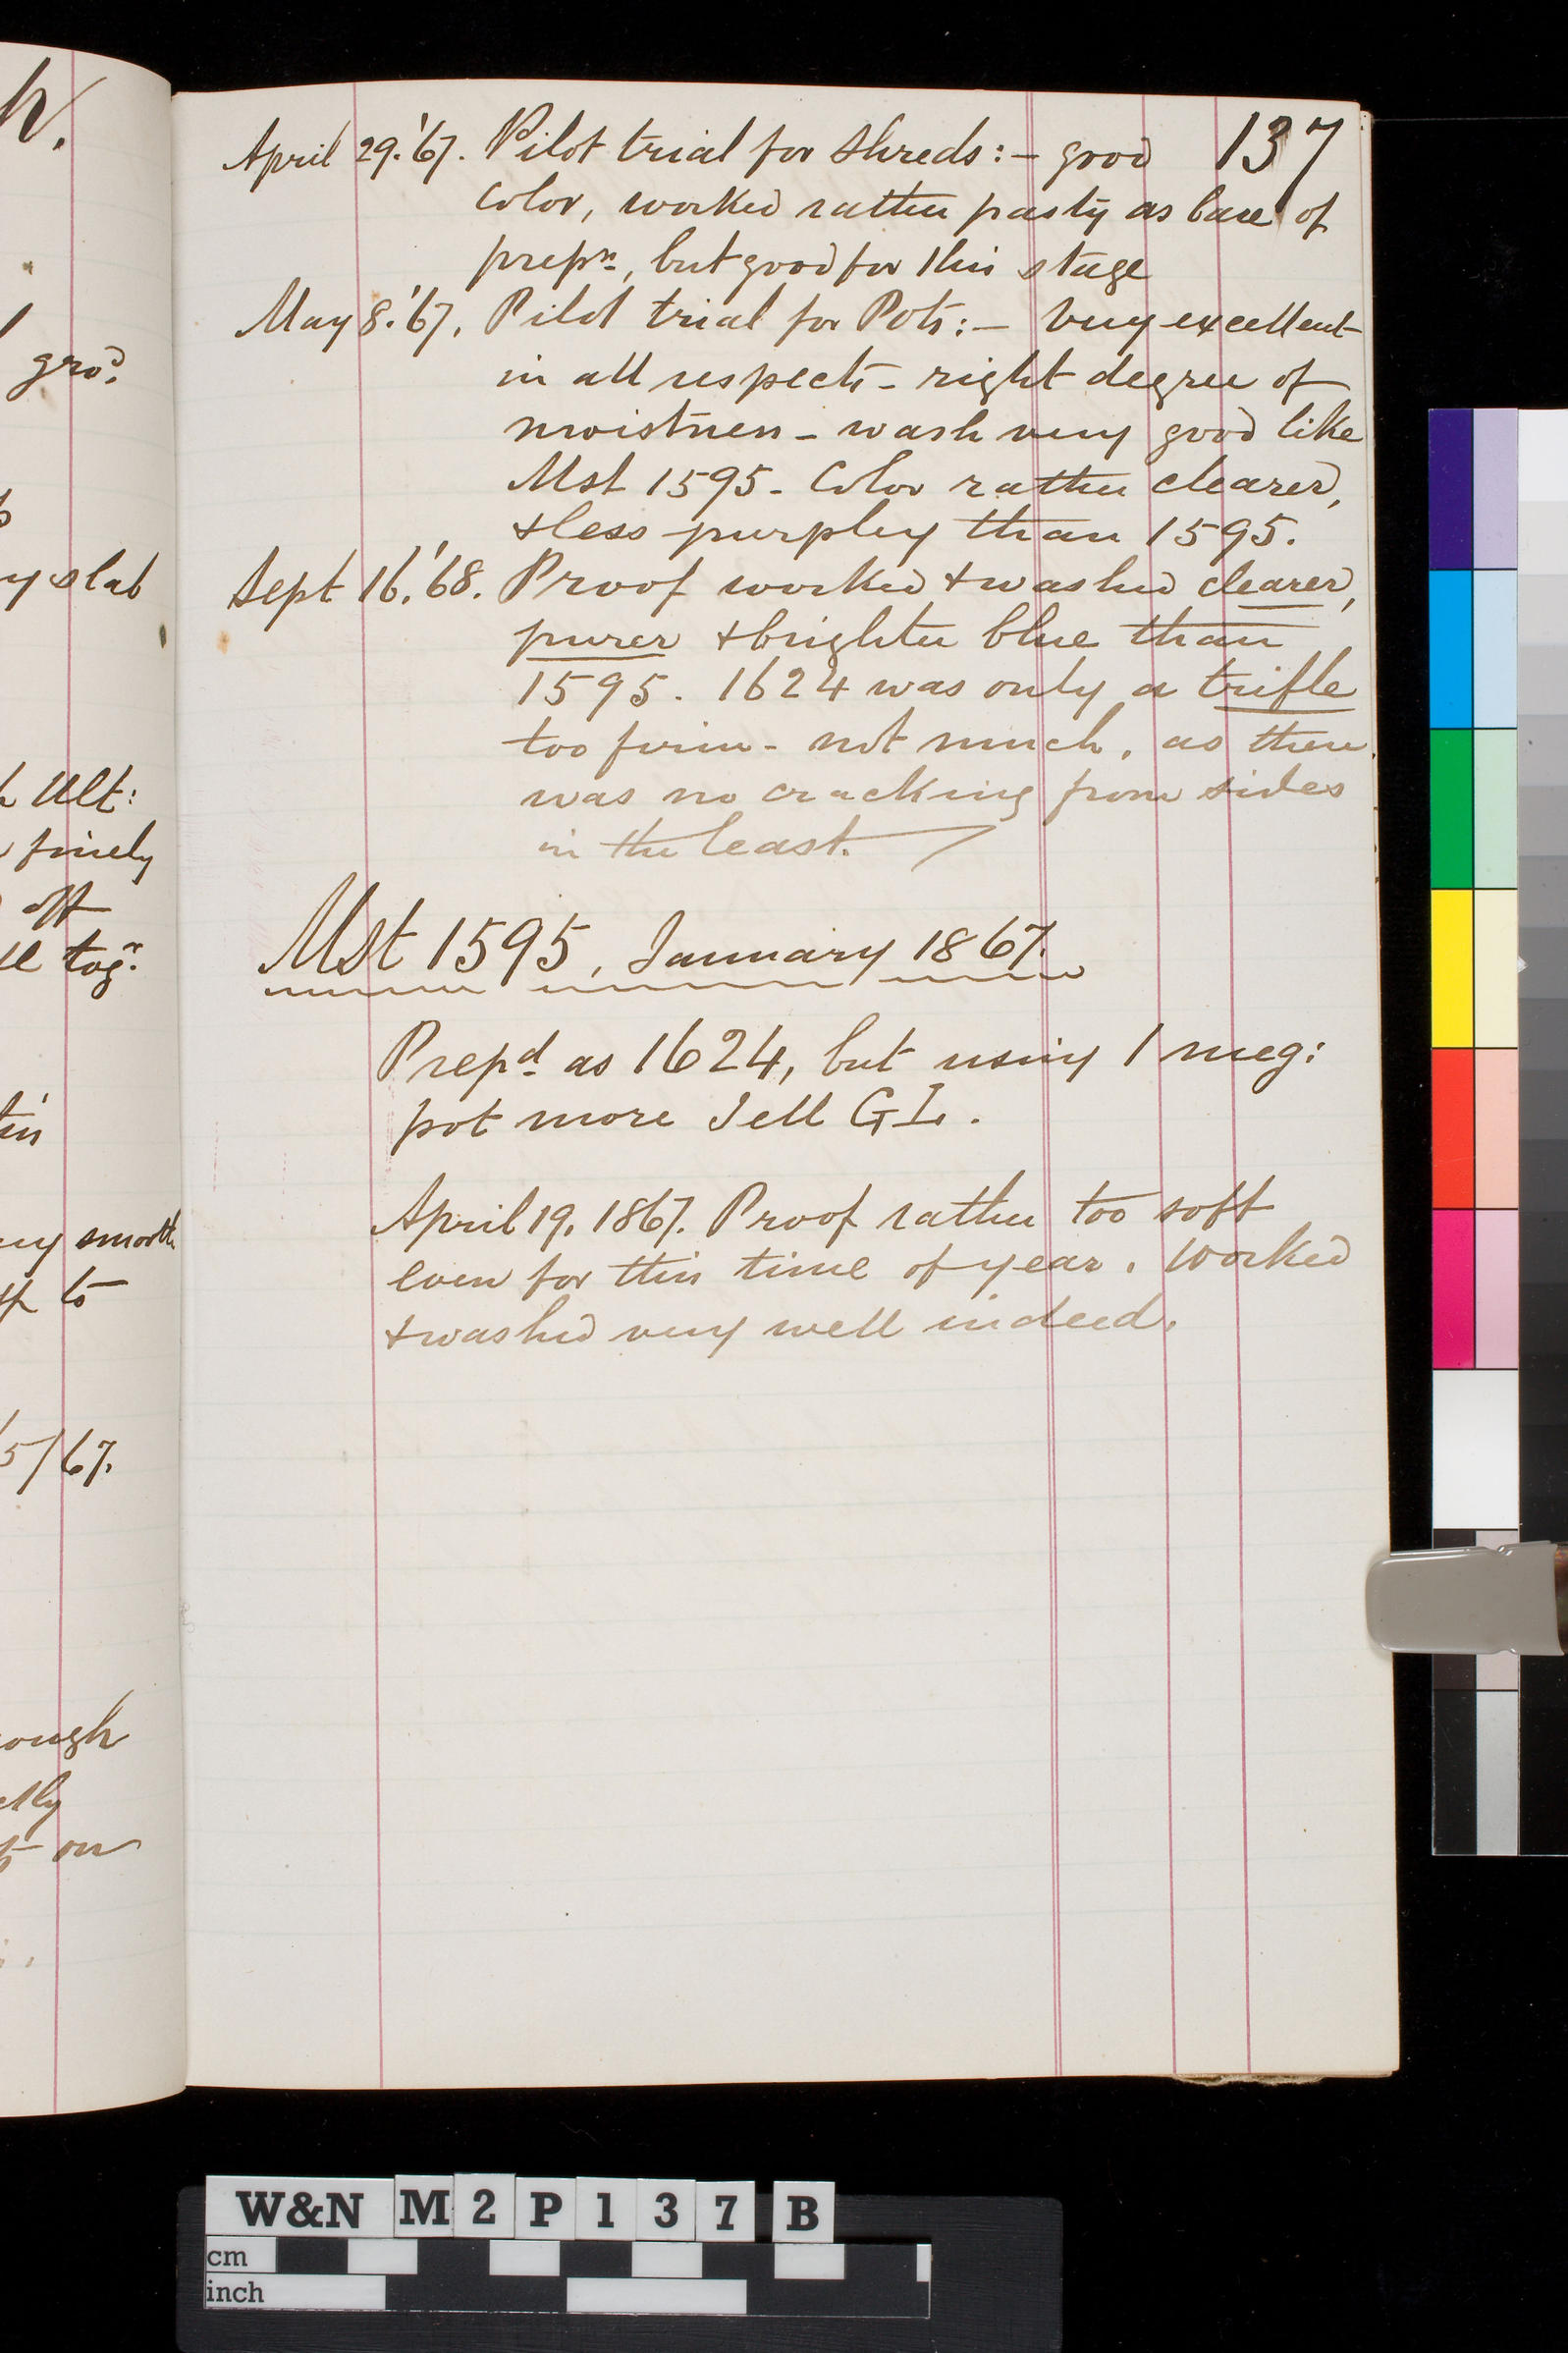 h.
137
April 29.'67. Pilot trial for shreds:- good
color, worked rather pasty as base of
prepn, but good for this stage
May 8.'67. Pilot trial for Pots:- Very excellent
in all respects - right degree of
moistness - wash very good like
Mst 1595. Color rather clearer,
& less purpley than 1595.
Sept 16.'68. Proof worked & washed clearer,
purer & brighter blue than
1595. 1624 was only a trifle
too firm - not much, as there
was no cracking from sides
in the least.
Mst 1595, January 1867.
Prepd as 1624, but using 1 meg:
pot more Jell GL.
April 19, 1867. Proof rather too soft
even for this time of year. Worked
& washed very well indeed.
grod.
slab
Ult:
finely
off
togr.
tin
smooth
to
5/67.
on
W&N M2P137B
cm
inch